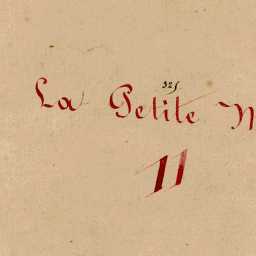 325
La Petite M
11